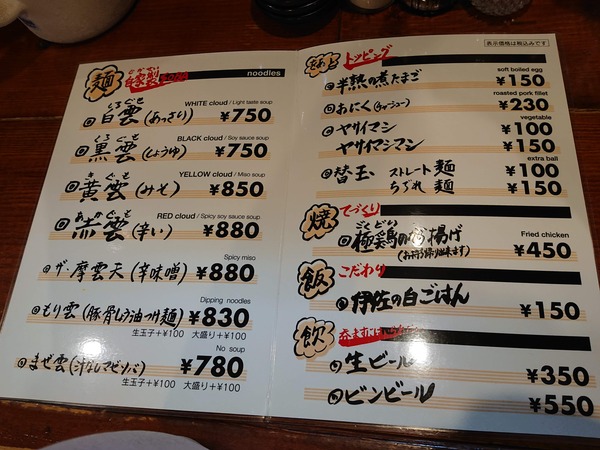 麺 自家製 noodles
しろぐも WHITE cloud / Light taste soup
白雲(あっさり) ¥750
くろぐも BLACK cloud / Soy sauce soup
黒雲(しょうゆ) ¥750
きぐも YELLOW cloud / Miso soup
黄雲(みそ) ¥850
あかぐも RED cloud / Spicy soy sauce soup
赤雲(辛い) ¥880
Spicy miso
ザ・摩雲天(辛味噌) ¥880
Dipping noodles
もり雲(豚骨しょうゆつけ麺) ¥830
生玉子+¥100 大盛り+¥100
No soup
まぜ雲(汁なしマゼソバ) ¥780
生玉子+¥100 大盛り+¥100
表示価格は税込みです
トッピング
soft boiled egg
半熟の煮たまご ¥150
roasted pork fillet
おにく(チャーシュー) ¥230
vegetable
ヤサイマシ ¥100
ヤサイマシマシ ¥150
extra ball
替玉 ストレート麺 ¥100
ちぢれ麺 ¥150
焼 てづくり
Fried chicken
極楽鳥の唐揚げ ¥450
(お持ち帰り出来ます)
飯 こだわり
伊佐の白ごはん ¥150
飲
生ビール ¥350
ビンビール ¥550